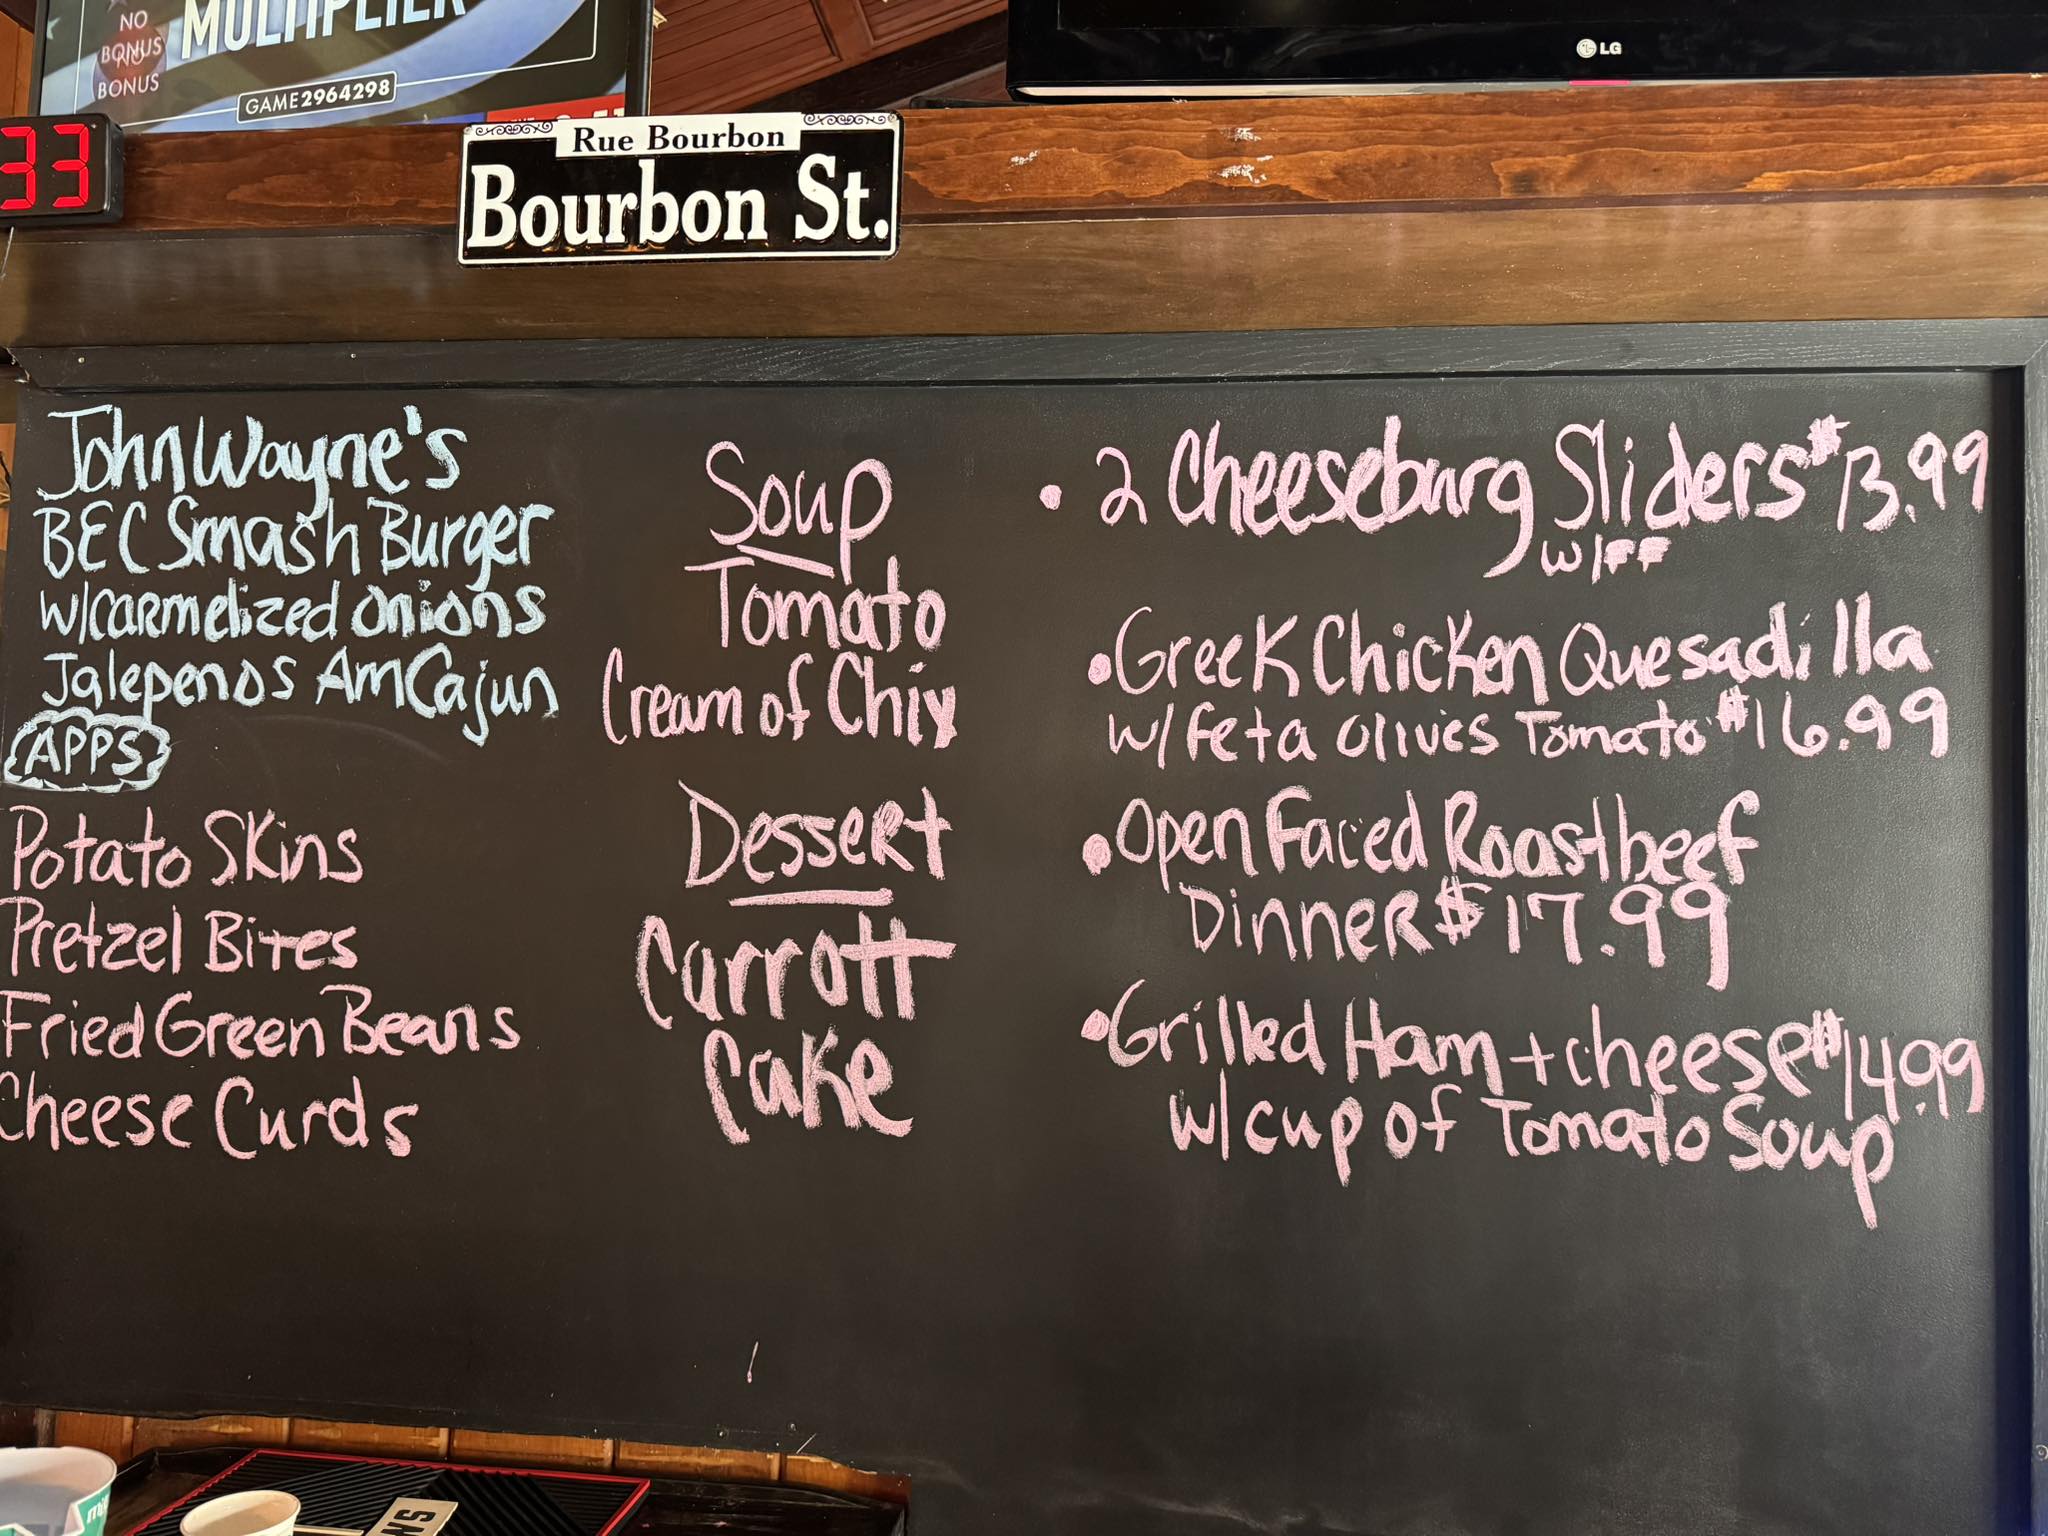 NO
BONUS
NO
BONUS
MULTIPLIER
GAME 2964298
LG
33
Rue Bourbon
Bourbon St.
John Wayne's
BEC Smash Burger
w/carmelized onions
Jalepenos Am Cajun
APPS
Potato Skins
Pretzel Bites
Fried Green Beans
Cheese Curds
Soup
Tomato
Cream of Chix
Dessert
Carrott
Cake
• 2 Cheeseburg Sliders $13.99
w/FF
• Greek Chicken Quesadilla
w/ feta olives Tomato $16.99
• Open Faced Roast beef
Dinner $17.99
• Grilled Ham + cheese $14.99
w/ cup of Tomato Soup